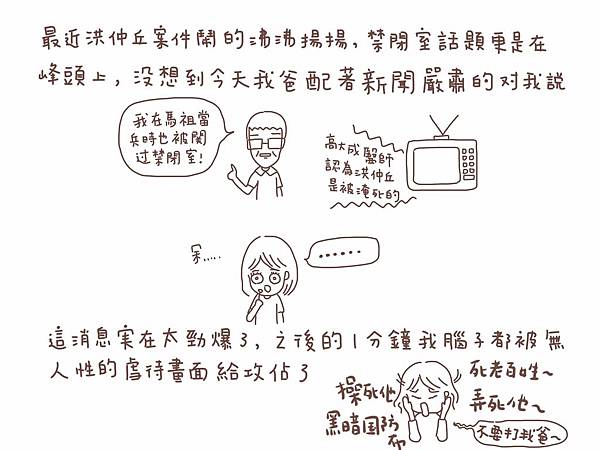 最近洪仲丘案件鬧的沸沸揚揚,禁閉室話題更是在
峰頭上,没想到今天我爸配著新聞嚴肅的对我說
我在馬祖當
兵時也被関
过禁閉室!
高大成醫師
認為洪仲丘
是被淹死的
......
呆.....
這消息実在太勁爆了,之後的1分鐘我腦子都被無
人性的虐待畫面給攻佔了
操死他
黑暗国防
布
死老百姓~
弄死他~
不要打我爸~